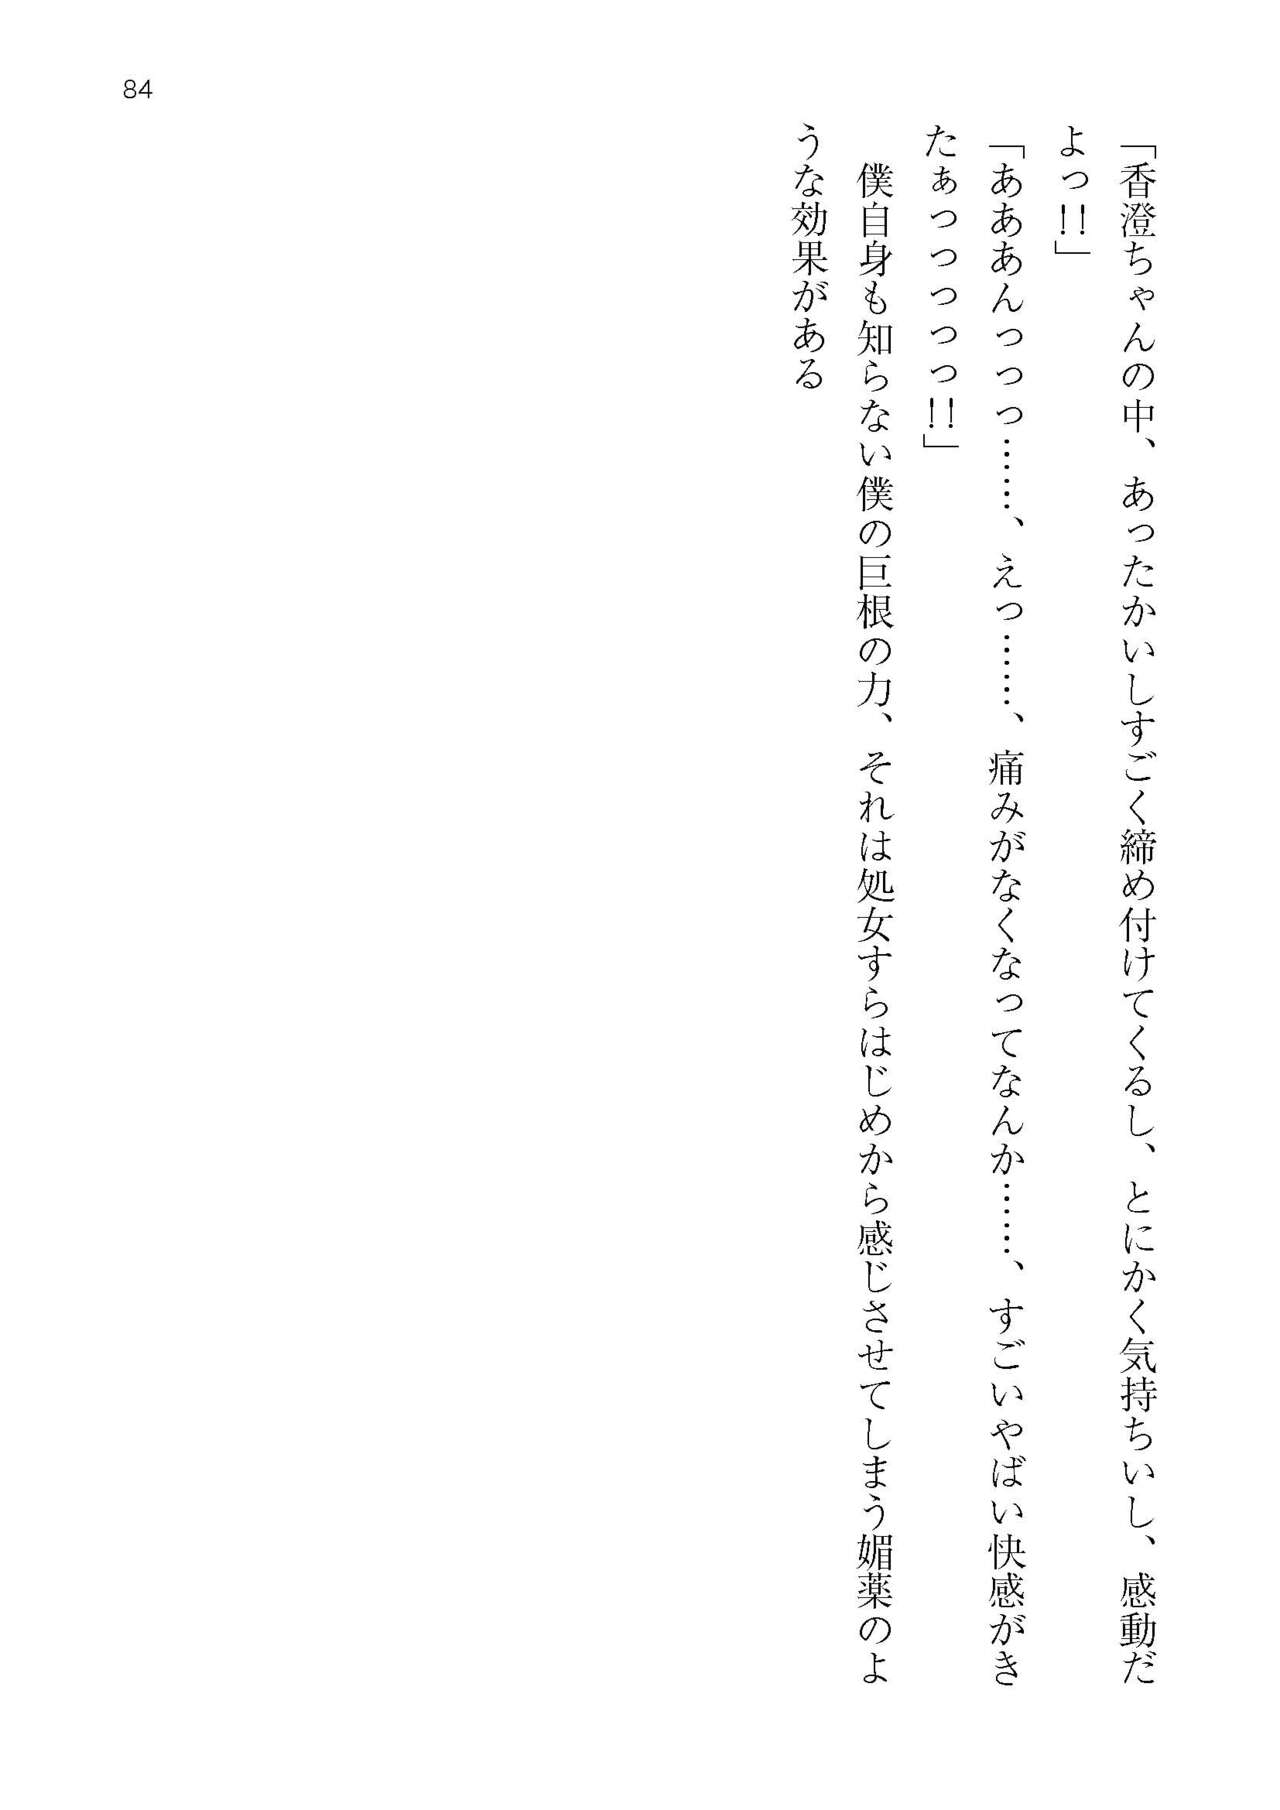 84
「香澄ちゃんの中、あったかいしすごく締め付けてくるし、とにかく気持ちいし、感動だ
よっ!!」
「あああんっっっ……、えっ……、痛みがなくなってなんか……、すごいやばい快感がき
たぁっっっっっ!!」
　僕自身も知らない僕の巨根の力、それは処女すらはじめから感じさせてしまう媚薬のよ
うな効果がある